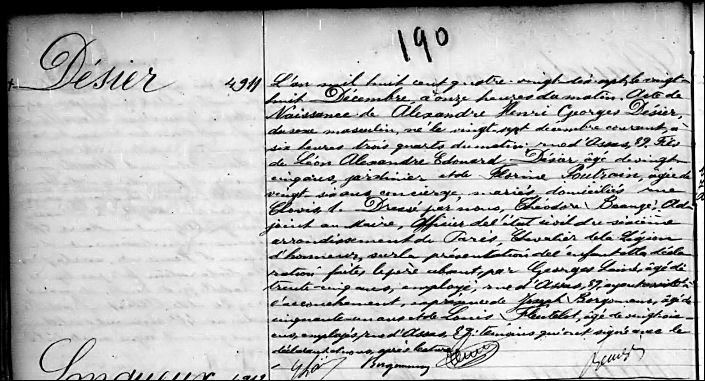 190
Désier 4911
L'an mil huit cent quatre-vingt-dix sept, le vingt-
huit Décembre, à onze heures du matin. Acte de
Naissance de Alexandre Henri Georges Désier,
du sexe masculin, né le vingt-sept décembre courant, à
six heures trois quarts du matin rue d'Assas, 89. Fils
de Léon Alexandre Edouard Désier, âgé de vingt
cinq ans, jardinier et de Florine Poutrain, âgée de
vingt six ans, concierge, mariés, domiciliés rue
Clovis, 1. Dressé par nous, Théodore Beaugé, Ad-
joint au Maire, Officier de l'état civil du sixième
arrondissement de Paris, Chevalier de la Légion
d'honneur, sur la présentation de l'enfant et la décla-
ration faite, le père absent, par Georges âgé de
trente cinq ans, employé, rue d'Assas, 89, ayant assisté à
l'accouchement, en présence de Joseph Bergomans, âgé de
cinquante un ans et de Louis âgé de vingt six
ans, employés, rue d'Assas, 89, témoins qui ont signé avec le
déclarant et nous, après lecture.
Bergomans
1912